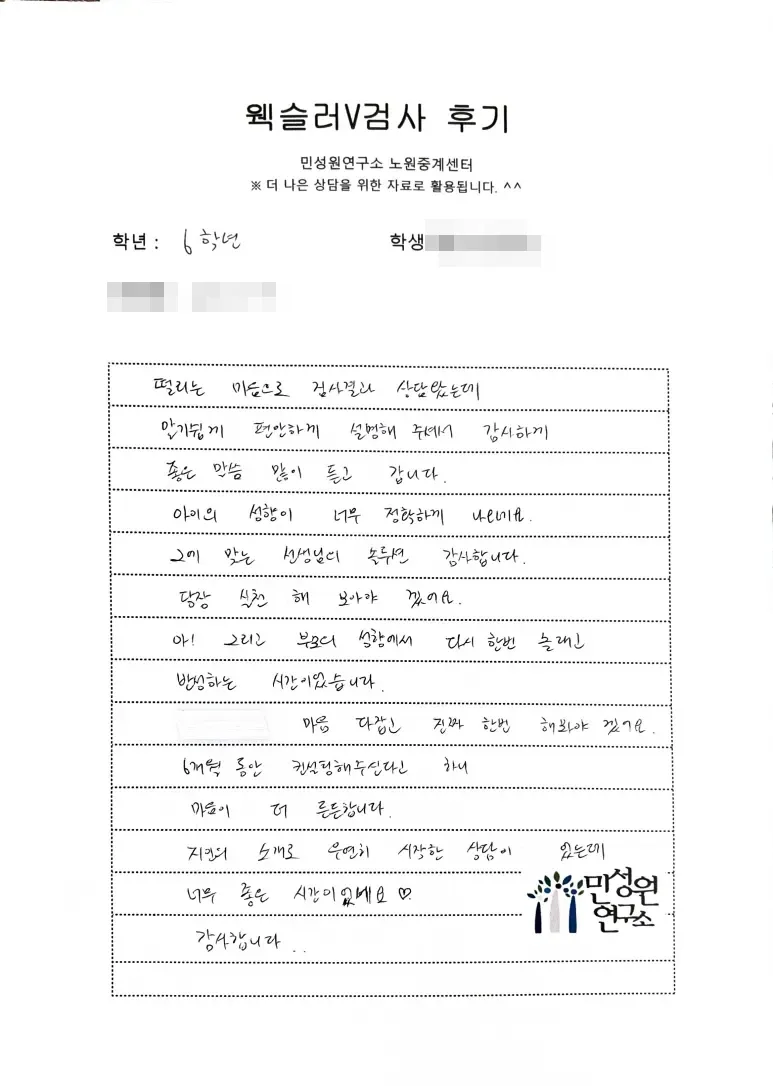 웩슬러V검사 후기
민성원연구소 노원중계센터
※ 더 나은 상담을 위한 자료로 활용됩니다. ^^
학년 : 6학년
학생
떨리는 마음으로 검사결과 상담왔는데
알기쉽게 편안하게 설명해 주셔서 감사하게
좋은 말씀 많이 듣고 갑니다.
아이의 성향이 너무 정확하게 나오네요.
그에 맞는 선생님의 솔루션 감사합니다.
당장 실천 해 보아야 겠어요.
아! 그리고 부모의 성향에서 다시 한번 놀래고
반성하는 시간이었습니다.
마음 다잡고 진짜 한번 해봐야 겠어요.
6개월 동안 컨설팅해주신다고 하니
마음이 더 든든합니다.
지인의 소개로 우연히 시작한 상담이 었는데
너무 좋은 시간이었네요 ♡.
감사합니다..
민성원
연구소